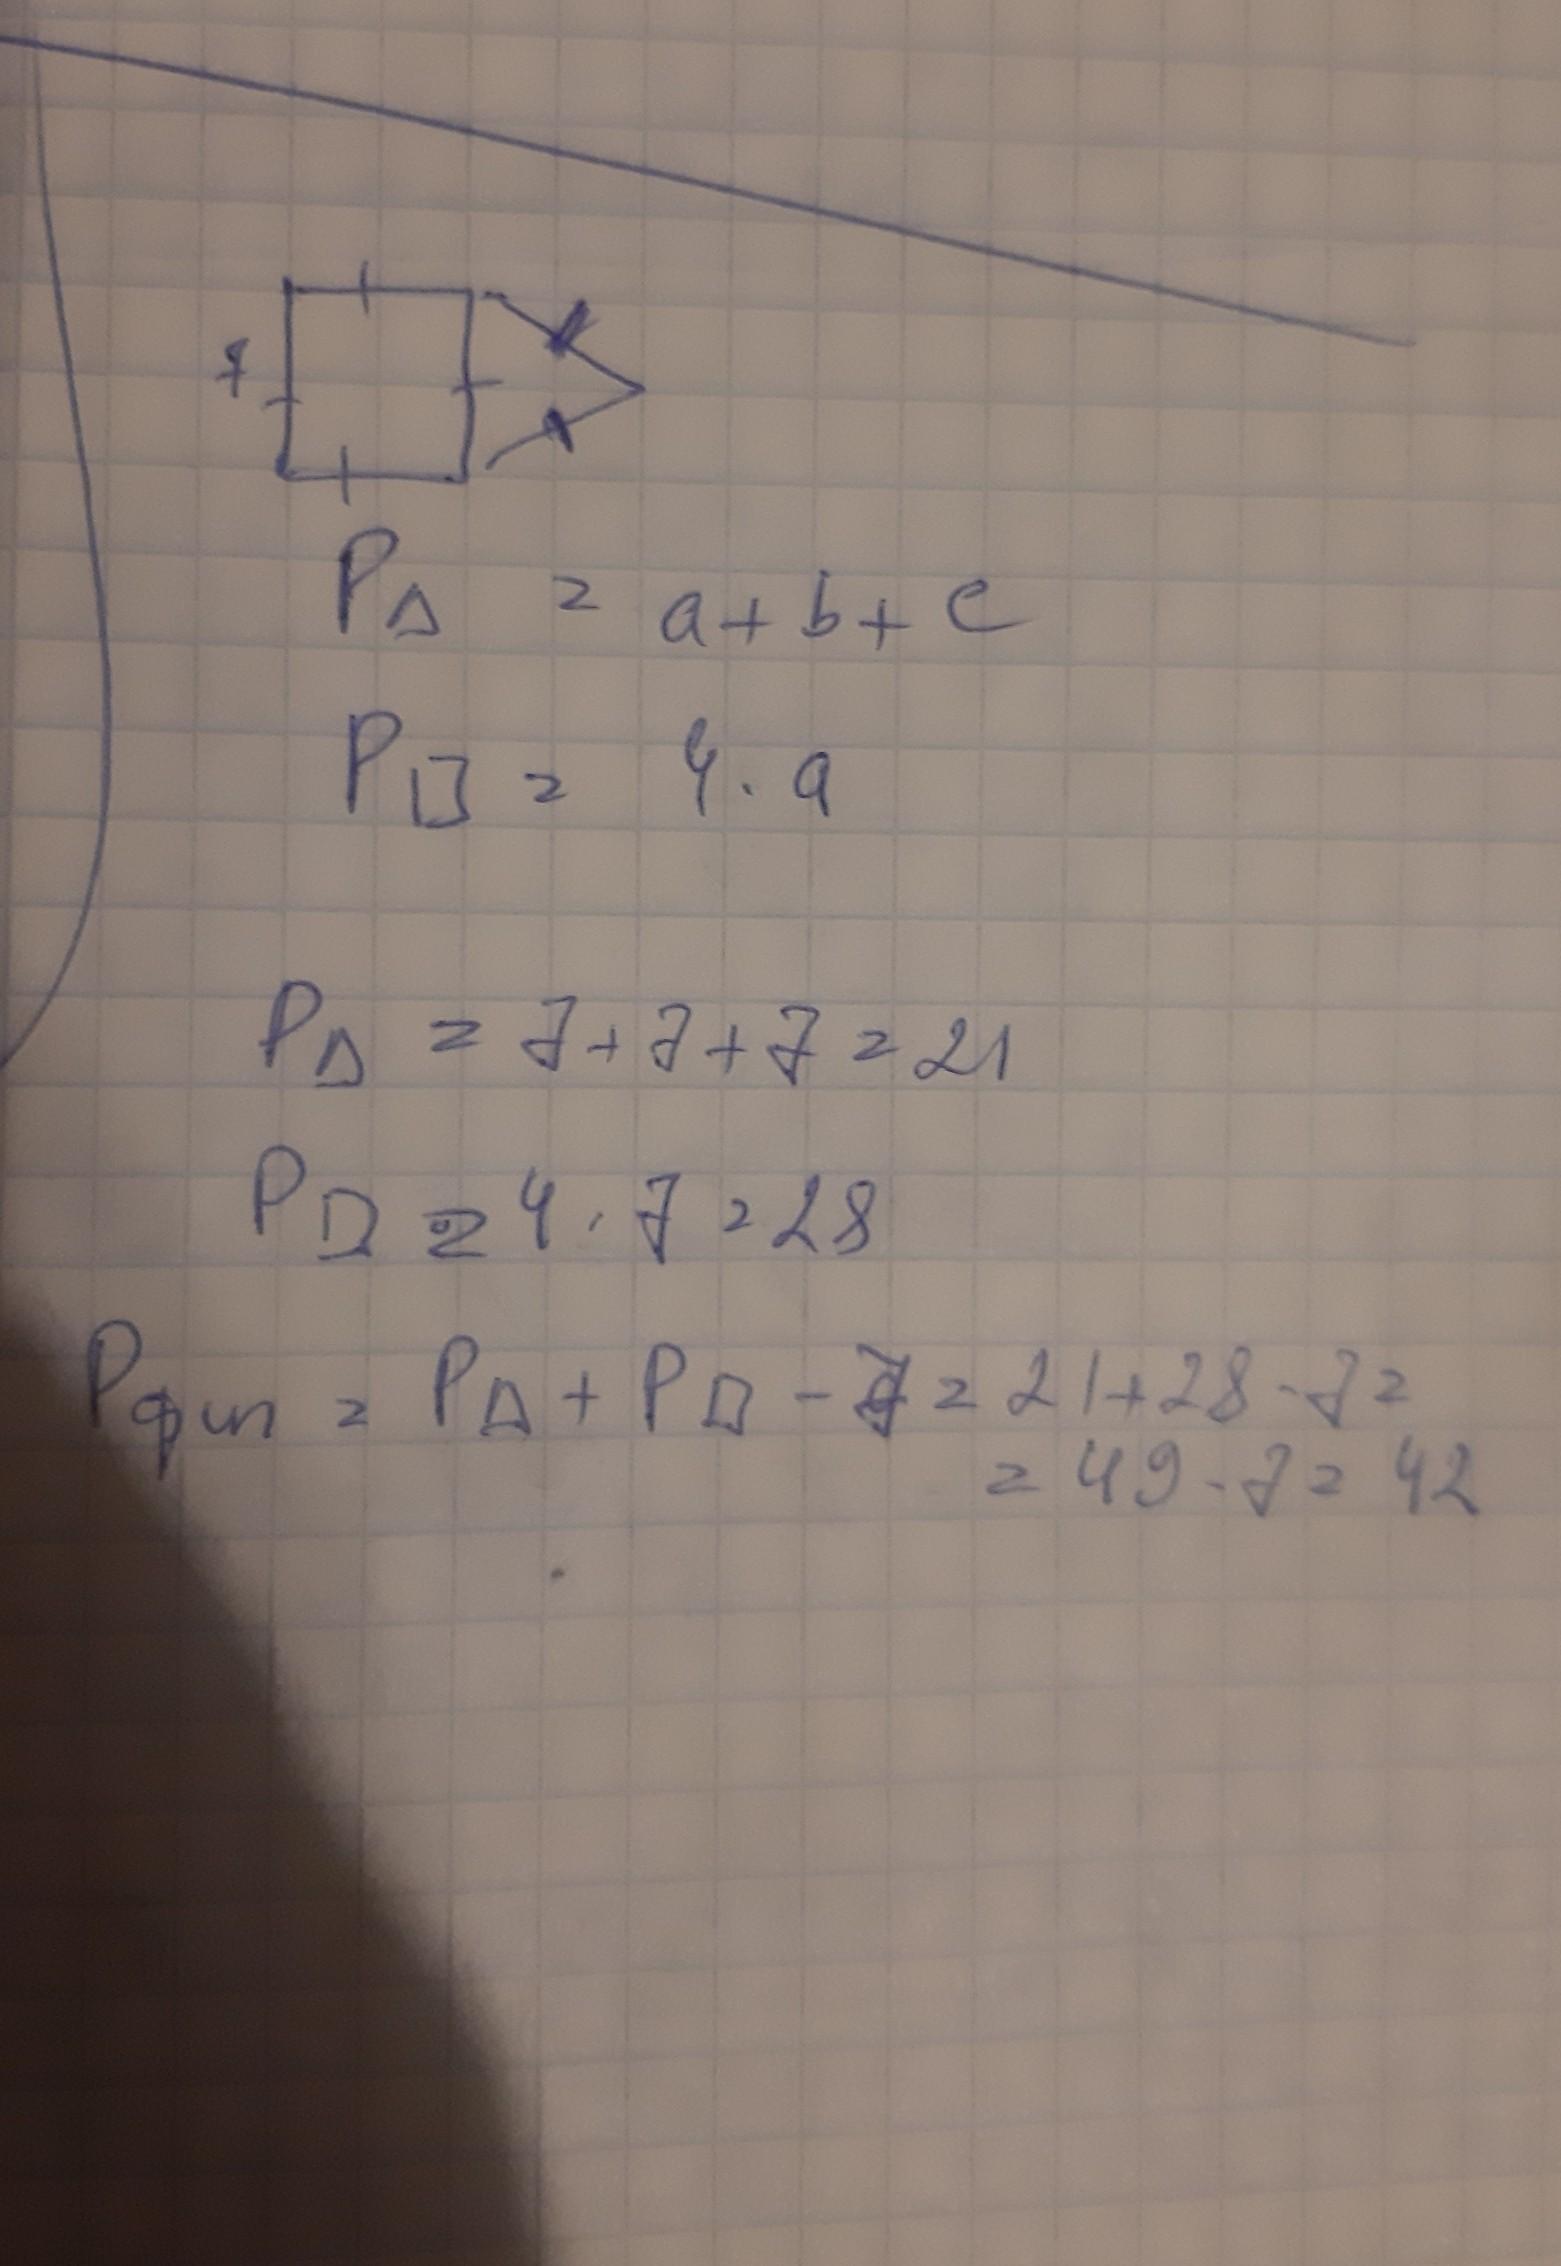 7
P△ = a + b + c
P□ = 4 · a
P△ = 7 + 7 + 7 = 21
P□ = 4 · 7 = 28
Pфиг = P△ + P□ - 7 = 21 + 28 - 7 =
= 49 - 7 = 42